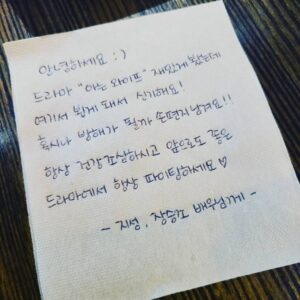 안녕하세요 :)
드라마 "아는 와이프" 재밌게 봤는데
여기서 뵙게 돼서 신기해요!
혹시나 방해가 될까 손편지남겨요!!
항상 건강조심하시고 앞으로도 좋은
드라마에서 항상 파이팅하세요♡
- 지성, 장승조 배우님께 -